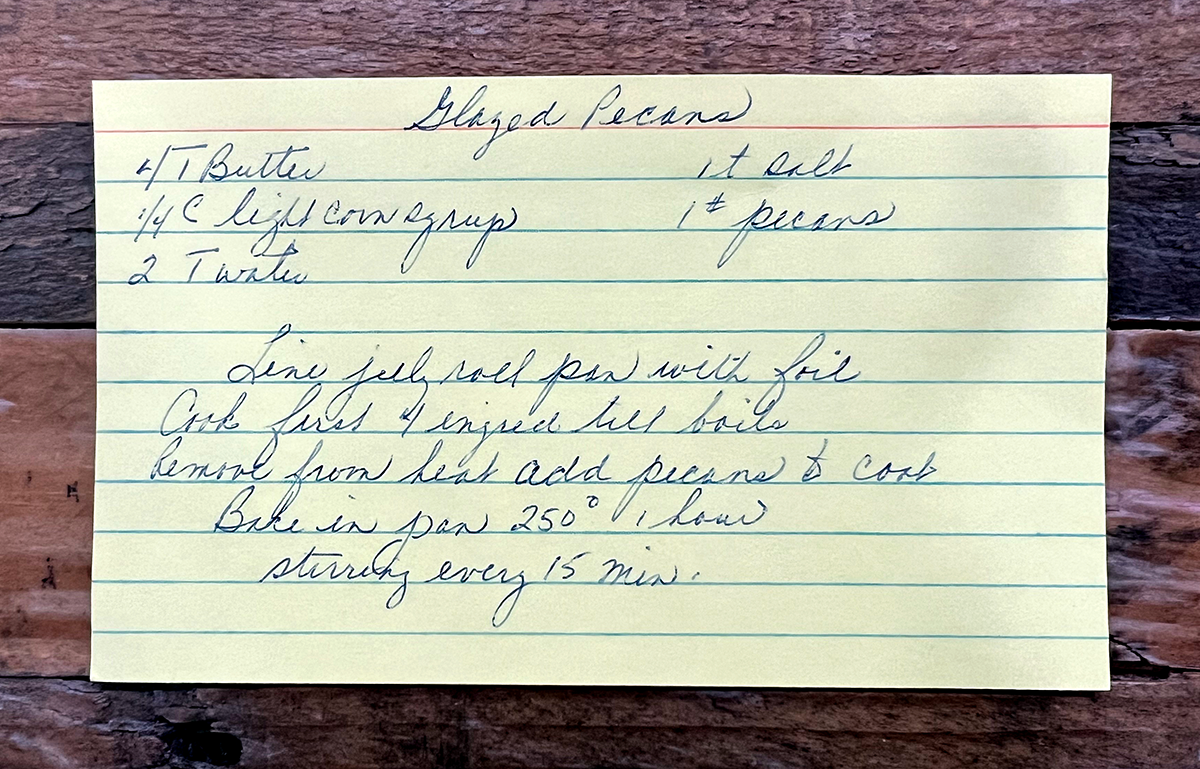 Glazed Pecans
4T Butter 1t salt
1/4 C light corn syrup 1# pecans
2 T water
Line jelly roll pan with foil
Cook first 4 ingred till boils
Remove from heat add pecans to coat
Bake in pan 250° 1 hour
stirring every 15 min.